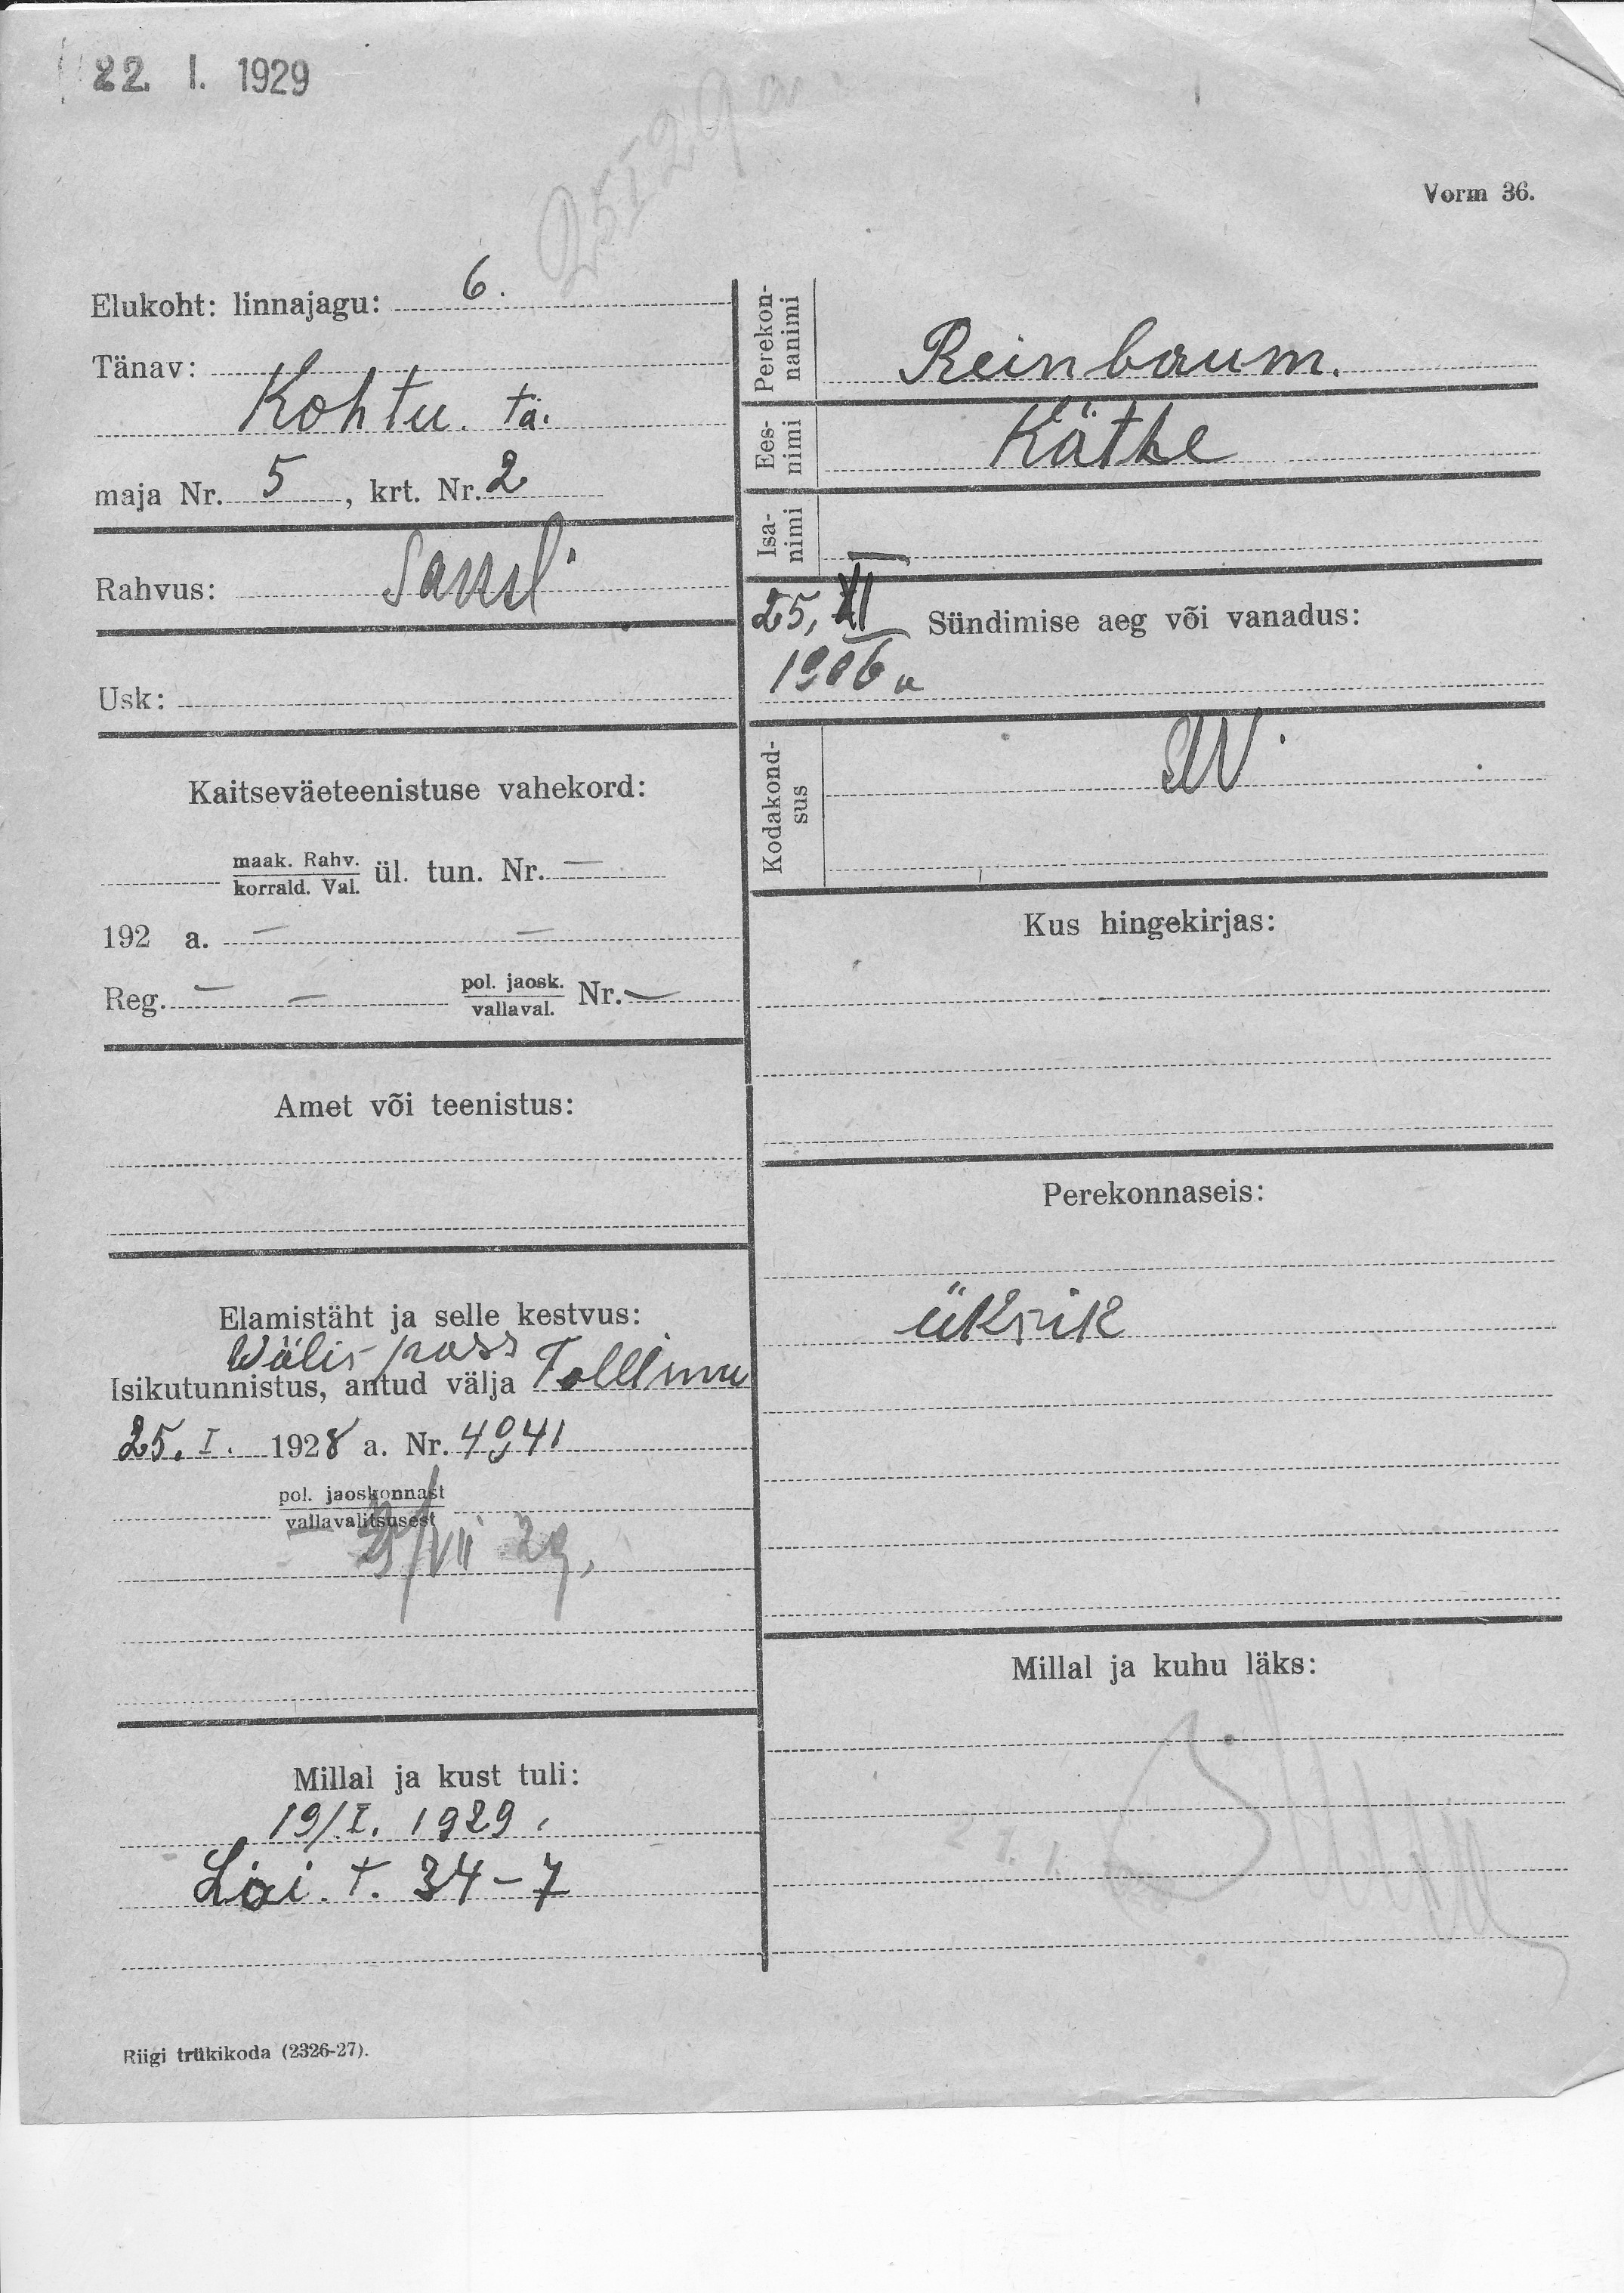 22. I. 1929
25 I 29 a
Vorm 36.
Elukoht: linnajagu: 6.
Tänav:
Kohtu. tä.
maja Nr. 5, krt. Nr. 2
Rahvus: Saksl.
Usk:
Kaitseväeteenistuse vahekord:
maak. Rahv.
korrald. Val.
ül. tun. Nr. —
192 a. — —
Reg. — — pol. jaosk.
vallaval.
Nr. —
Amet või teenistus:
Elamistäht ja selle kestvus:
Wälis-pass
Isikutunnistus, antud välja Tallinnu
25. I. 1928 a. Nr. 4941
pol. jaoskonnast
vallavalitsusest
VII 29.
Millal ja kust tuli:
19/I. 1929.
Lai. t. 34-7
Riigi trükikoda (2326-27).
Perekon-
nanimi
Reinbaum.
Ees-
nimi
Käthe
Isa-
nimi
25, XI Sündimise aeg või vanadus:
1906 a
Kodakond-
sus
Kus hingekirjas:
Perekonnaseis:
üksik
Millal ja kuhu läks: